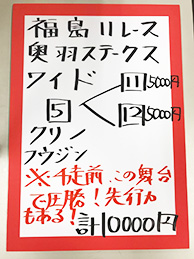 福島11レース
奥羽ステークス
ワイド
5 < 11 5000円
12 5000円
クリノ
フウジン
※4走前、この舞台
で圧勝!先行力
もある!
計10000円